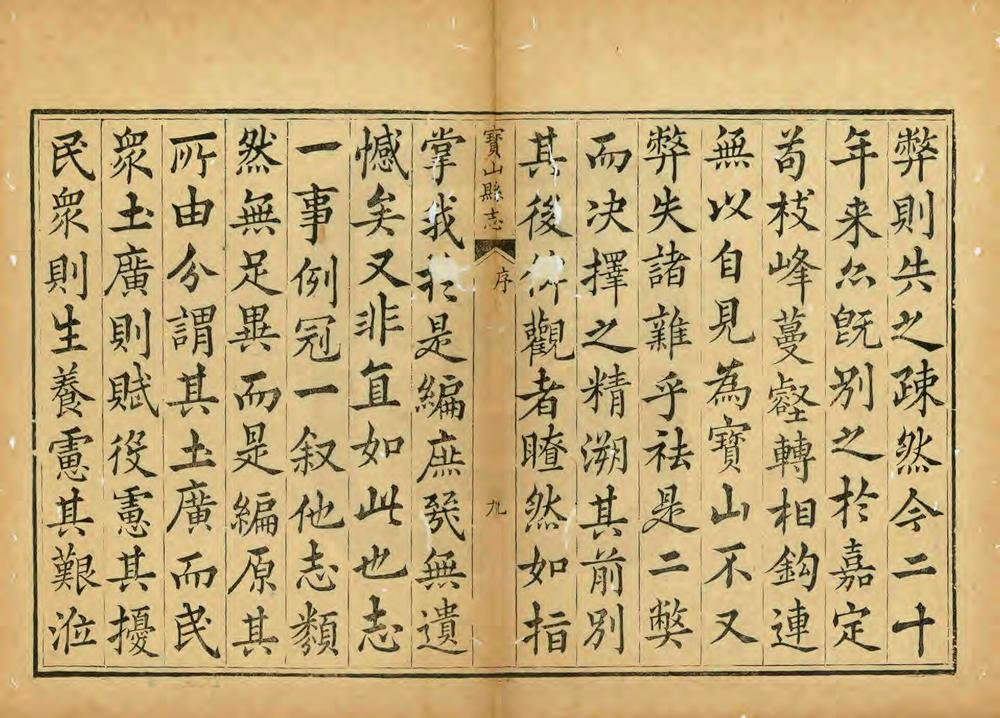 弊則失之疎然今二十
年来尔既别之於嘉定
苟枝峰蔓壑轉相鈎連
無以自見為寶山不又
弊失諸雜乎祛是二獘
而决擇之精溯其前别
其後俾觀者瞭然如指
寶山縣志 序 九
掌我於是編庶㡬無遺
憾矣又非直如此也志
一事例冠一叙他志類
然無足異而是編原其
所由分謂其土廣而民
衆土廣則賦役慮其擾
民衆則生養慮其艱涖